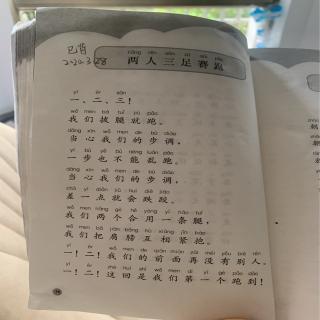 已背
2-24.3.28
liǎng rén sān zú sài pǎo
两人三足赛跑
yī èr sān
一、二、三！
wǒ men bá tuǐ jiù pǎo
我们拔腿就跑。
dāng xīn wǒ men de bù diào
当心我们的步调，
yī bù yě bù néng luàn pǎo
一步也不能乱跑。
dāng xīn wǒ men de bù diào
当心我们的步调，
chà yī diǎn jiù huì diē jiāo
差一点就会跌跤。
wǒ men liǎng gè hé yòng yī tiáo tuǐ
我们两个合用一条腿，
wǒ men bǎ jiān bǎng hù xiāng jǐn bào
我们把肩膀互相紧抱。
一！二！我们的前面再没有别人。
一！二！这回是我们第一个跑到！